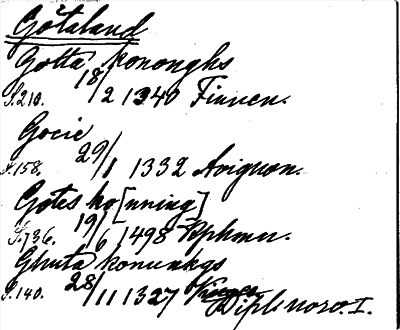 Götaland
Gotta kononghs
S.210. 18/2 1340 Finnen.
Gocie
S.158. 29/1 1332 Avignon.
Götes ko[nning]
S.736. 19/6 1498
Ghuta konunkgs
S.140. 28/11 1327 Dipl. norv. I.